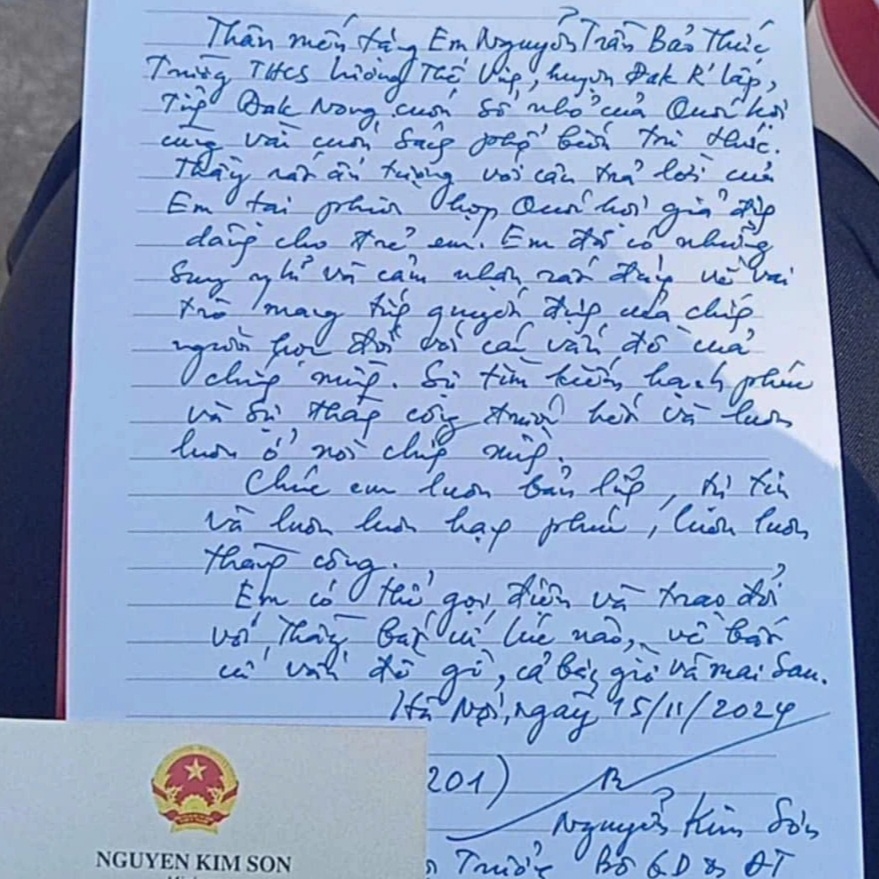 Thân mến tặng Em Nguyễn Trần Bảo Thức
Trường THCS Lương Thế Vinh, huyện Đak R'lấp,
Tỉnh Đak Nong cuốn sổ nhỏ của Quốc hội
cùng vài cuốn sách phổ biến tri thức.
Thầy rất ấn tượng với câu trả lời của
Em tại phiên họp Quốc hội giả định
dành cho trẻ em. Em đã có những
suy nghĩ và cảm nhận rất đúng về vai
trò mang tính quyết định của chính
người học đối với các vấn đề của
chính mình. Sự tìm kiếm hạnh phúc
và sự thành công trước hết và luôn
luôn ở nơi chính mình.
Chúc em luôn bản lĩnh, tự tin
và luôn luôn hạnh phúc, luôn luôn
thành công.
Em có thể gọi điện và trao đổi
với Thầy bất cứ lúc nào, về bất
cứ vấn đề gì, cả bây giờ và mai sau.
Hà Nội, ngày 15/11/2024
201)
Nguyễn Kim Sơn
Trưởng Bộ GD & ĐT
NGUYEN KIM SON